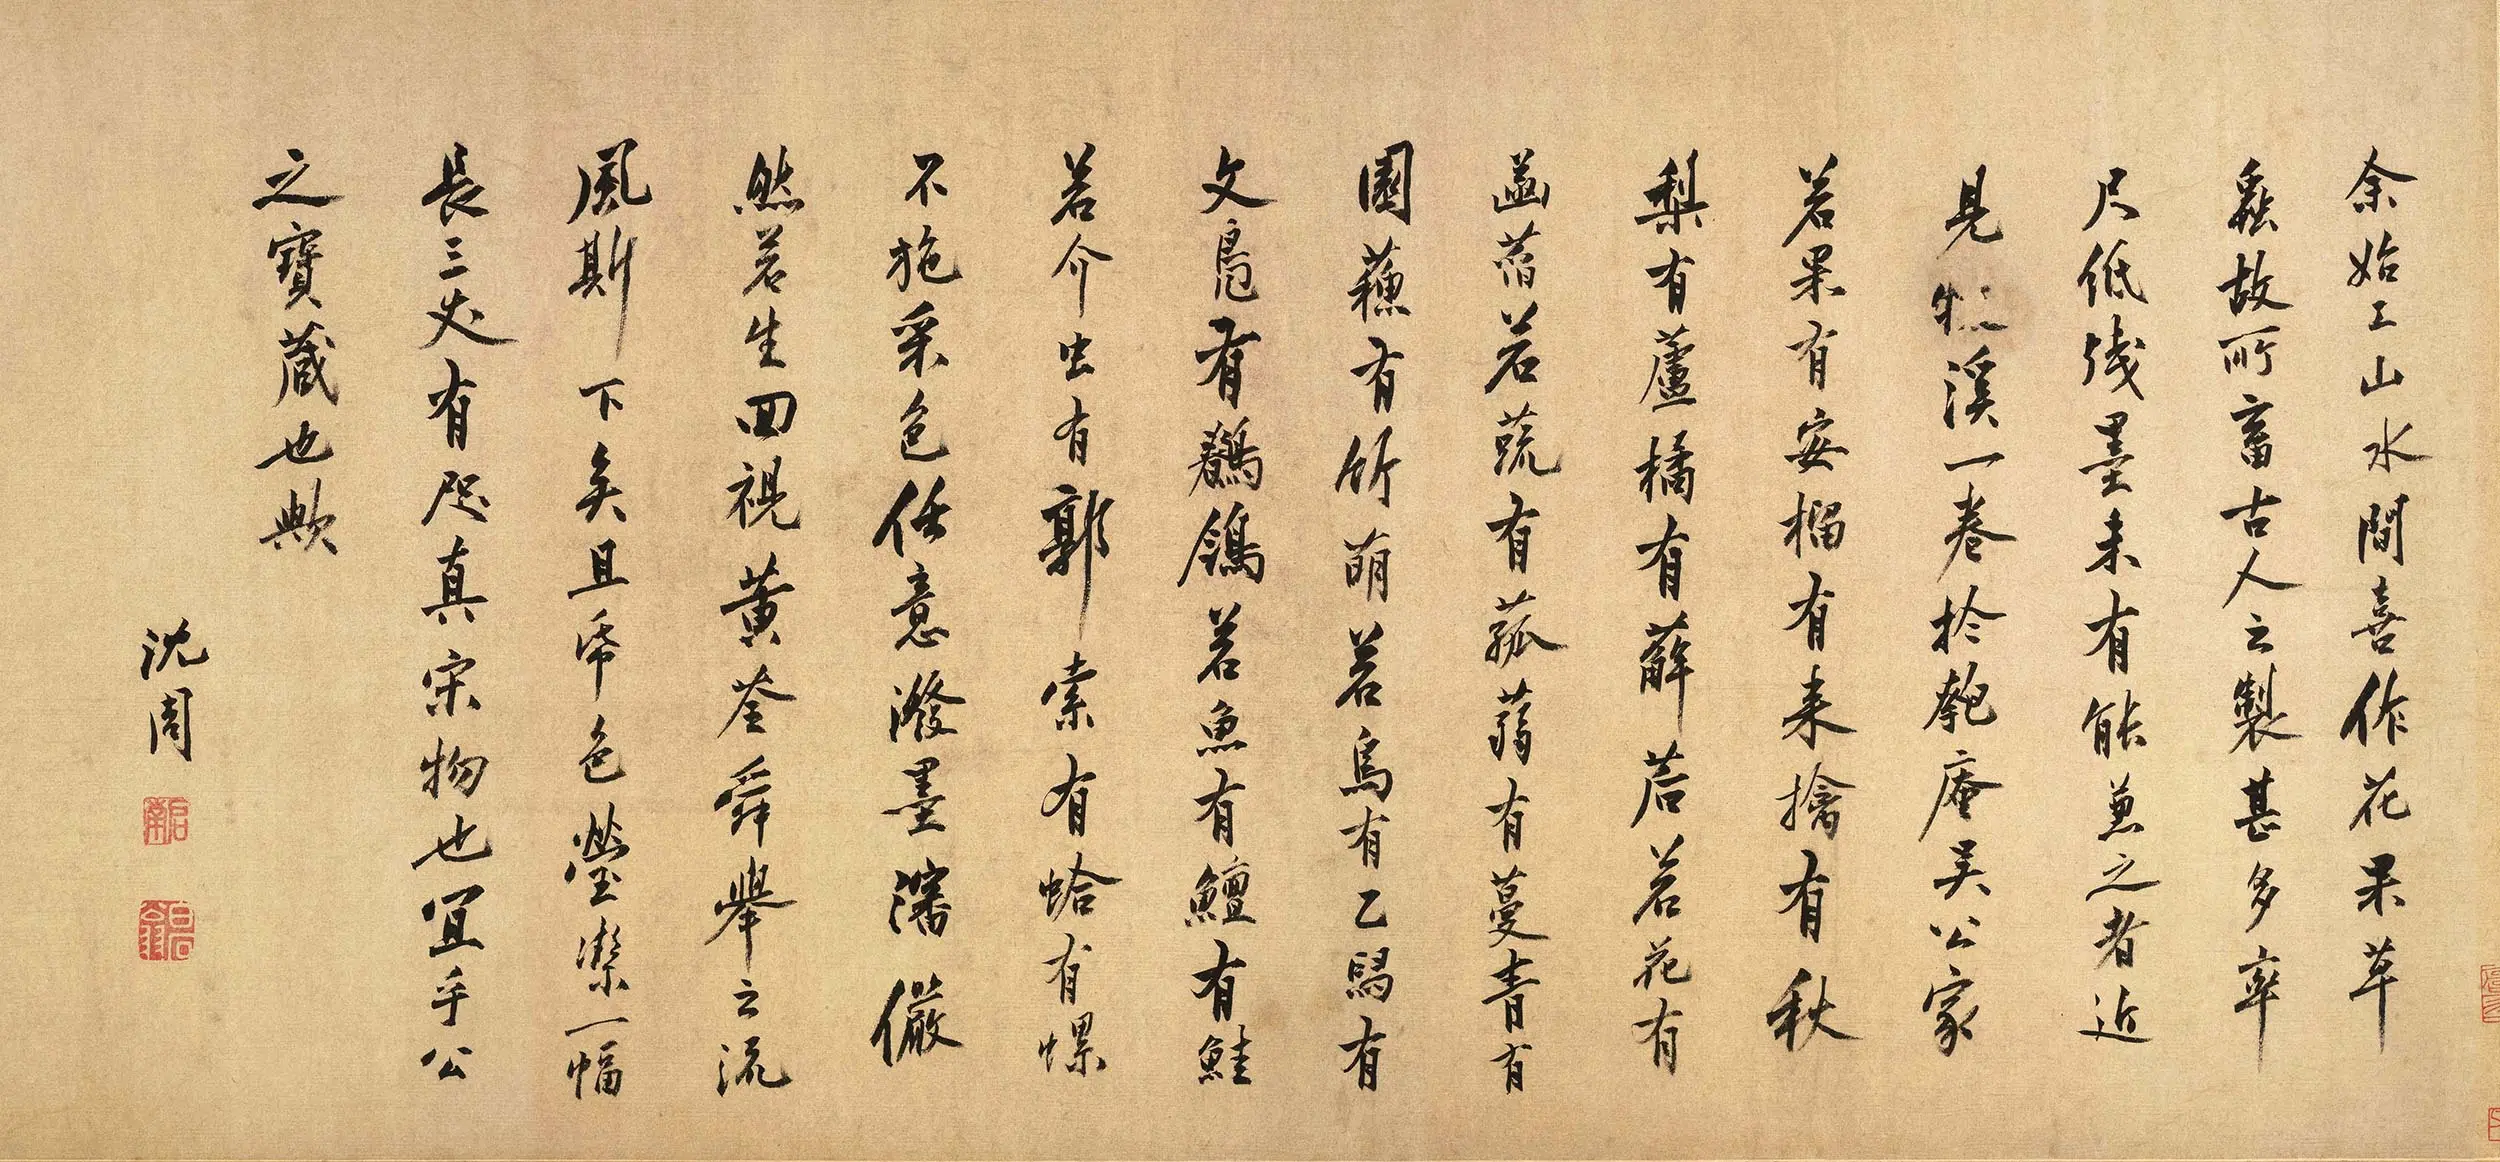 余始工山水間喜作花果草
蟲故所畜古人之製甚多率
尺低殘墨未有能兼之者近
見牧溪一卷於匏庵吳公家
若果有安榴有来檎有秋
梨有蘆橘有薢茩若花有
菡萏若蔬有菰蒻有蔓青有
園蘓有竹萌若鳥有乙舄有
文鳧有鶺鴒若魚有鱣有鮭
若介虫有郭索有蛤有螺
不施采色任意潑墨瀋儼
然若生回視黃荃舜舉之流
風斯下矣且帋色瑩潔一幅
長三丈有咫真宋物也宜乎公
之寶藏也歟
沈周